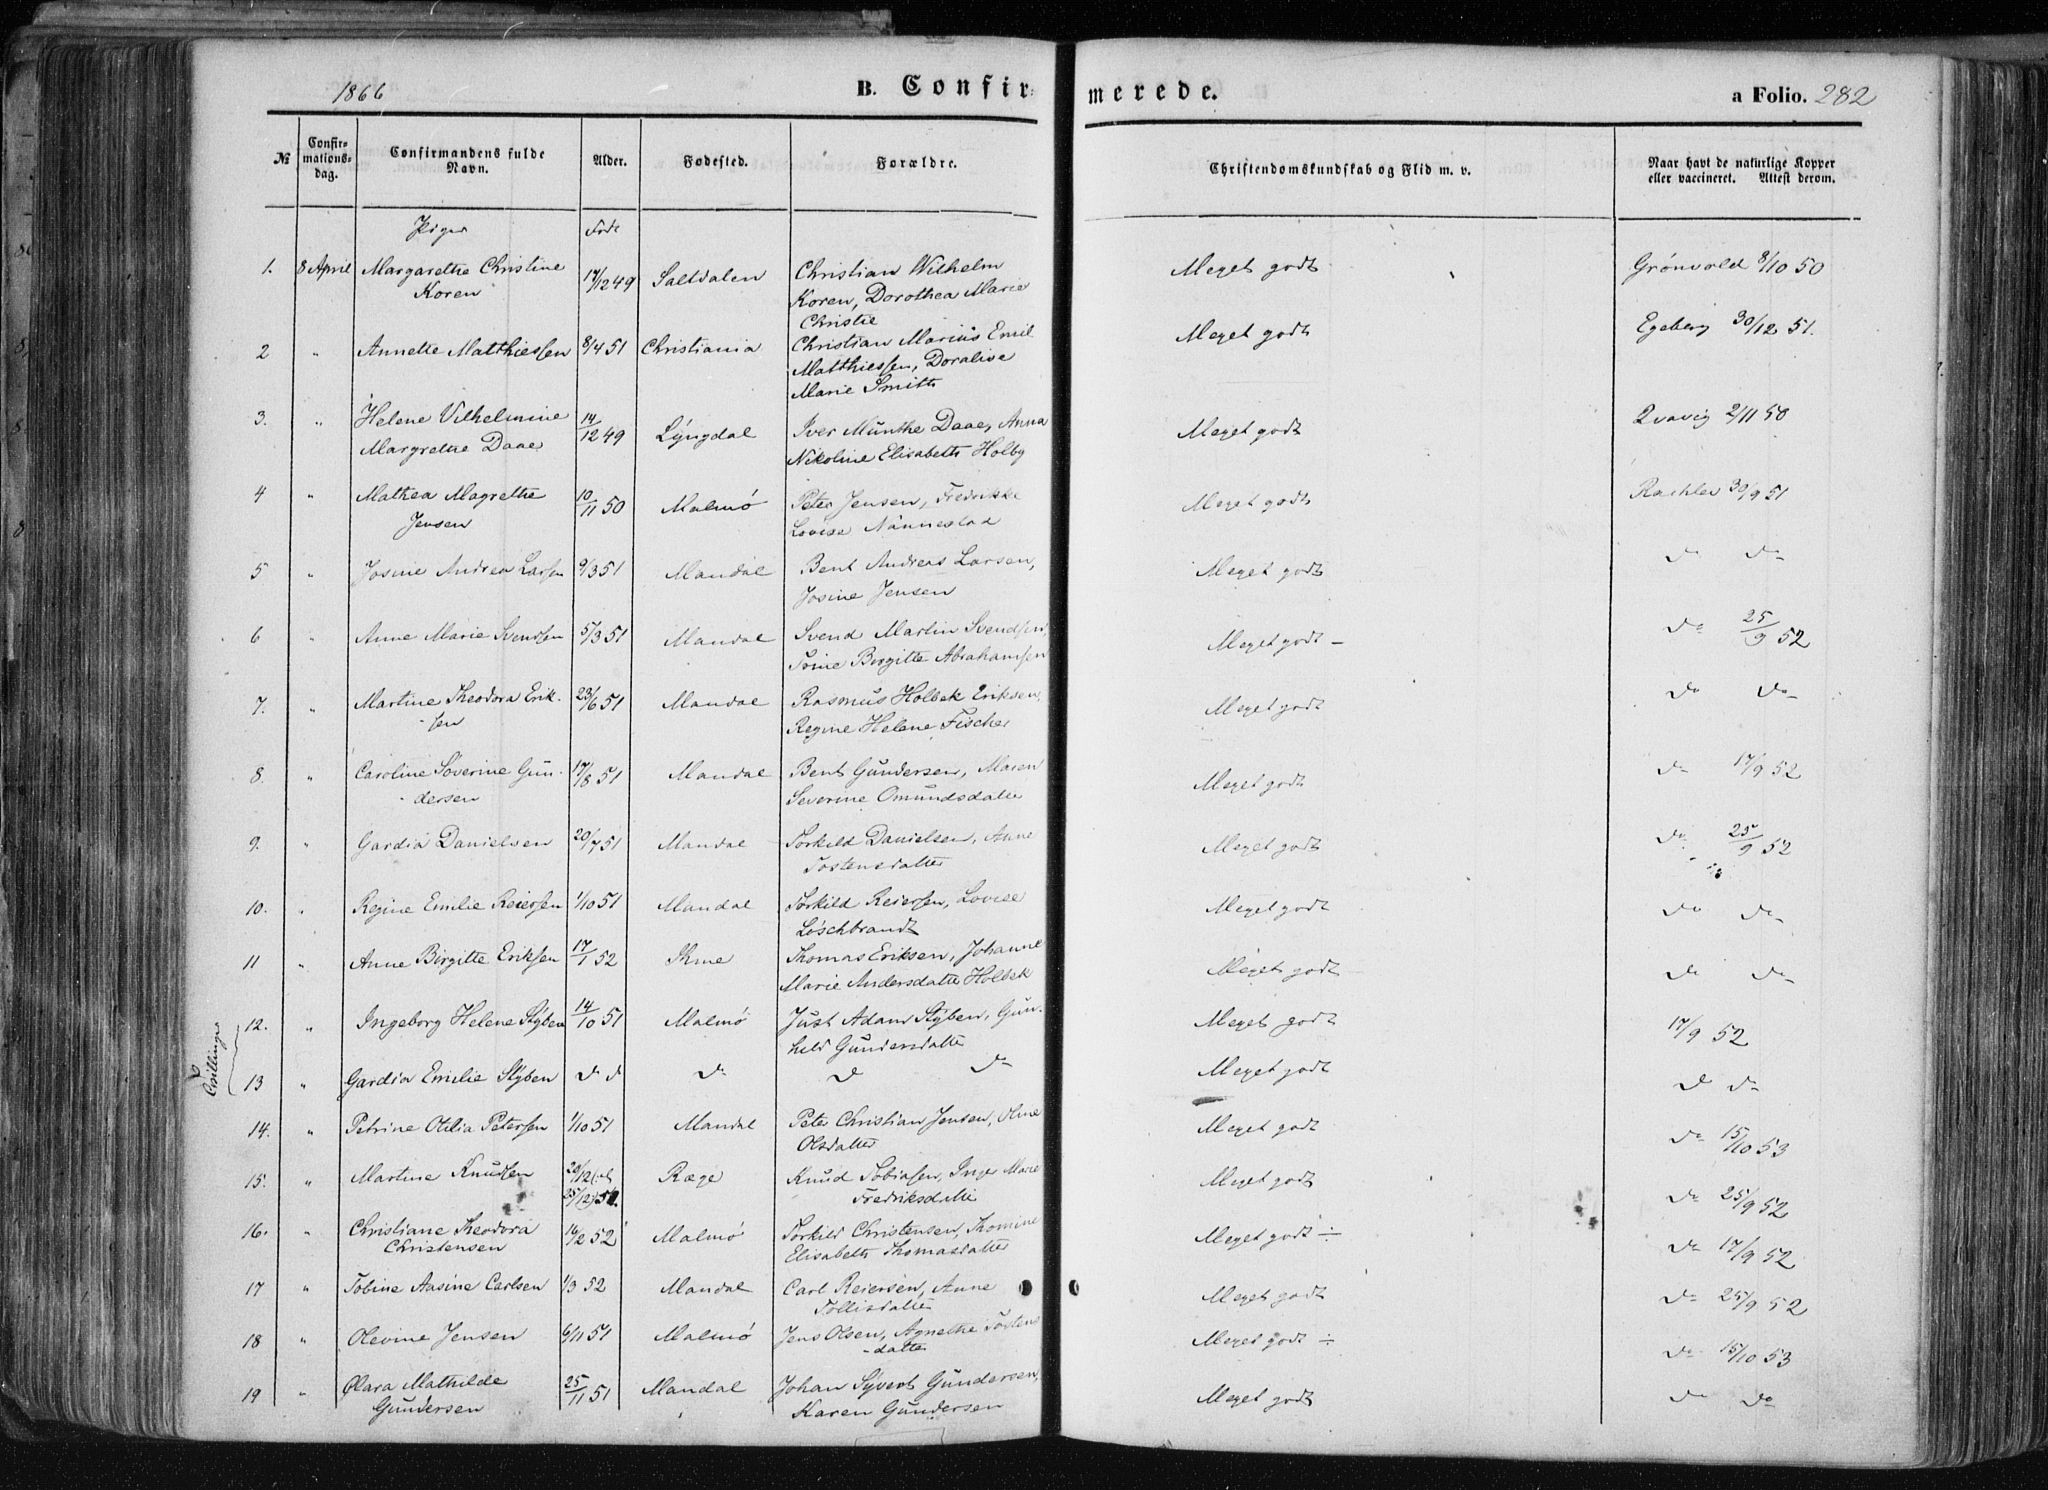 1866 B. Confirmerede. a Folio. 282
№ Confirmationsdag. Confirmandens fulde Navn. Alder. Fødested. Forældre. Christendomskundskab og Flid m. v. Naar havt de naturlige Kopper eller vaccineret. Attest derom.
Piger Føde
1. 8 April Margarethe Christine 17/12 49 Saltdalen Christian Wilhelm Meget godt Grønvold 8/10 50
Koren Koren, Dorothea Marie
Christie
2 " Annette Matthiessen 8/4 51 Christiania Christian Marius Emil Meget godt Egeberg 30/12 51.
Matthiessen, Doralise
Marie Smith
3. " Helene Vilhelmine 14/12 49 Lyngdal Iver Munthe Daae, Anna Meget godt Qvavig 2/11 50
Margrethe Daae Nikoline Elisabeth Holby
4 " Mathea Magrethe 10/11 50 Malmø Peter Jensen, Fredrikke Meget godt 30/9 51
Jensen Lovise Nannestad
5 " Josine Andrea Larsen 9/3 51 Mandal Bent Andreas Larsen, Meget godt Do Do
Josine Jensen
6 " Anne Marie Svendsen 5/3 51 Mandal Svend Martin Svendsen, Meget godt - Do 25/9 52
Birgitte Abrahamsen
7. " Martine Theodora Erik- 23/6 51 Mandal Rasmus Holbek Eriksen, Meget godt Do Do
-sen Regine Helene Fischer
8. " Caroline Severine Gun- 17/8 51 Mandal Bent Gundersen, Maren Meget godt Do 17/9 52
-dersen Severine Omundsdatter
9. " Gardia Danielsen 20/7 51 Mandal Torkild Danielsen, Anne Meget godt Do 25/9 52
Tostensdatter
10. " Regine Emilie Reiersen 1/10 51 Mandal Torkild Reiersen, Lovise Meget godt Do Do
Löschbrandt
11 " Anne Birgitte Eriksen 17/1 52 Ihme Thomas Eriksen, Johanne Meget godt Do Do
Marie Andersdatter Holbek
Tvillinger
12. " Ingeborg Helene Stÿben 14/10 51 Malmø Just Adam Stÿben, Gun- Meget godt 17/9 52
hild Gundersdatter
13 " Gardia Emilie Stÿben Do D Do D Do Meget godt D Do
14. " Petrine Otilia Petersen 1/10 51 Mandal Peter Christian Jensen, Oline Meget godt Do 15/10 53
Olsdatter
15. " Martine Knudsen 20/12 (el. Ræge Knud Tobiasen, Inge Marie Meget godt Do 25/9 52
25/12) 51. Fredriksdatter
16. " Christiane Theodora 16/2 52 Malmø Torkild Christensen, Thomine Meget godt ÷ Do 17/9 52
Christensen Elisabeth Thomasdatter
17 " Tobine Aasine Carlsen 1/3 52 Mandal Carl Reiersen, Anne Meget godt Do 25/9 52
Tollisdatter
18 " Olevine Jensen 6/11 51 Malmø Jens Olsen, Agnethe Tostens- Meget godt ÷ Do 15/10 53
-datter
19 " Olara Mathilde 25/11 51 Mandal Johan Syvert Gundersen, Meget godt Do Do
Gundersen Karen Gundersen